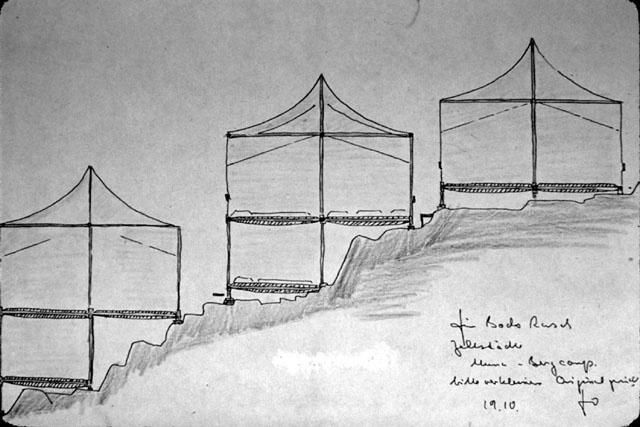 für Bodo Rasch
Zeltstädte
Muna - Bergcamp.
bitte verkleinern Original zurück
19.10. FO